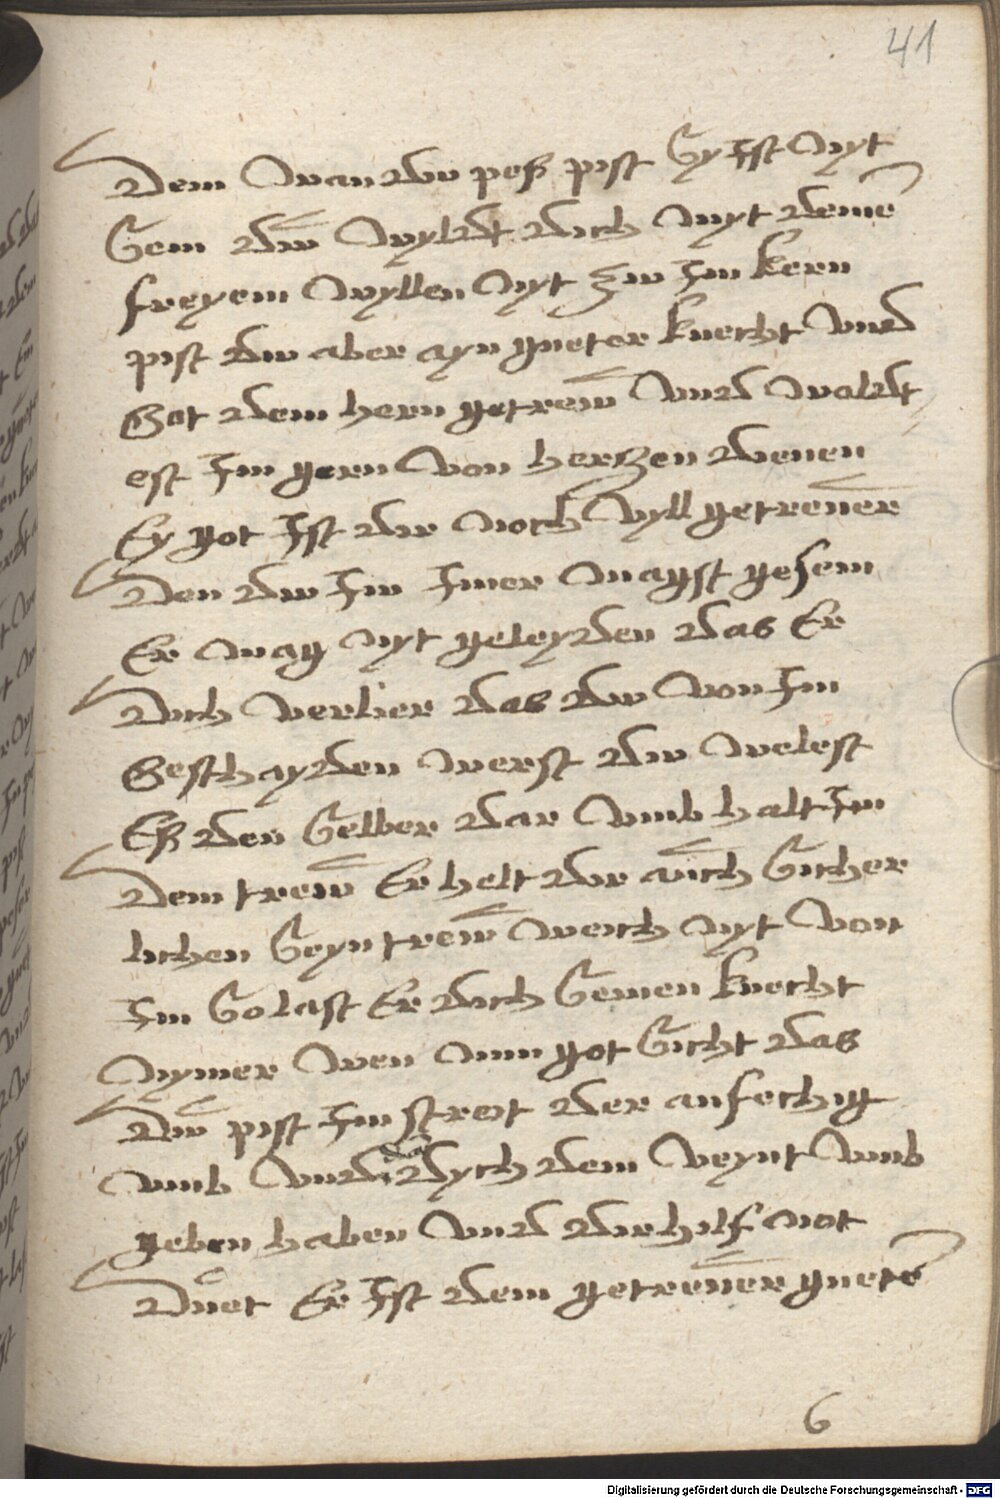 41
Dem Wan du peß pist Sy Ist Nyt
Sein dw Wyldt dich Myt deine
freyem Wyllen Nyt zw Im kern
pist dw aber ayn gueter knecht Vnd
Got dem hern getrew Vnd Woldt
est Im gern Von herzen dienen
Ey got Ist dir Noch Vyll getreuer
Den dw Im Imer Magst gesein
Er Mag Nyt geleyden das Er
Dich Verlier das dw Von Im
Geschayden Werst dw Welest
Eß den Selber dar Vmb halt Im
Dein trew Er helt dir auch Sicher
lichen Seyn trew Weich Nyt Von
Im So last Er dich Seinen knecht
Nymer Wen Nun got Sicht das
Dw pist Im streit der anfechtig
Vmb Vnd dych dein Veynt Vmb
geben haben Vnd dir hilf Not
Duet Er Ist dein getreuer guete
6
Digitalisierung gefördert durch die Deutsche Forschungsgemeinschaft - DFG